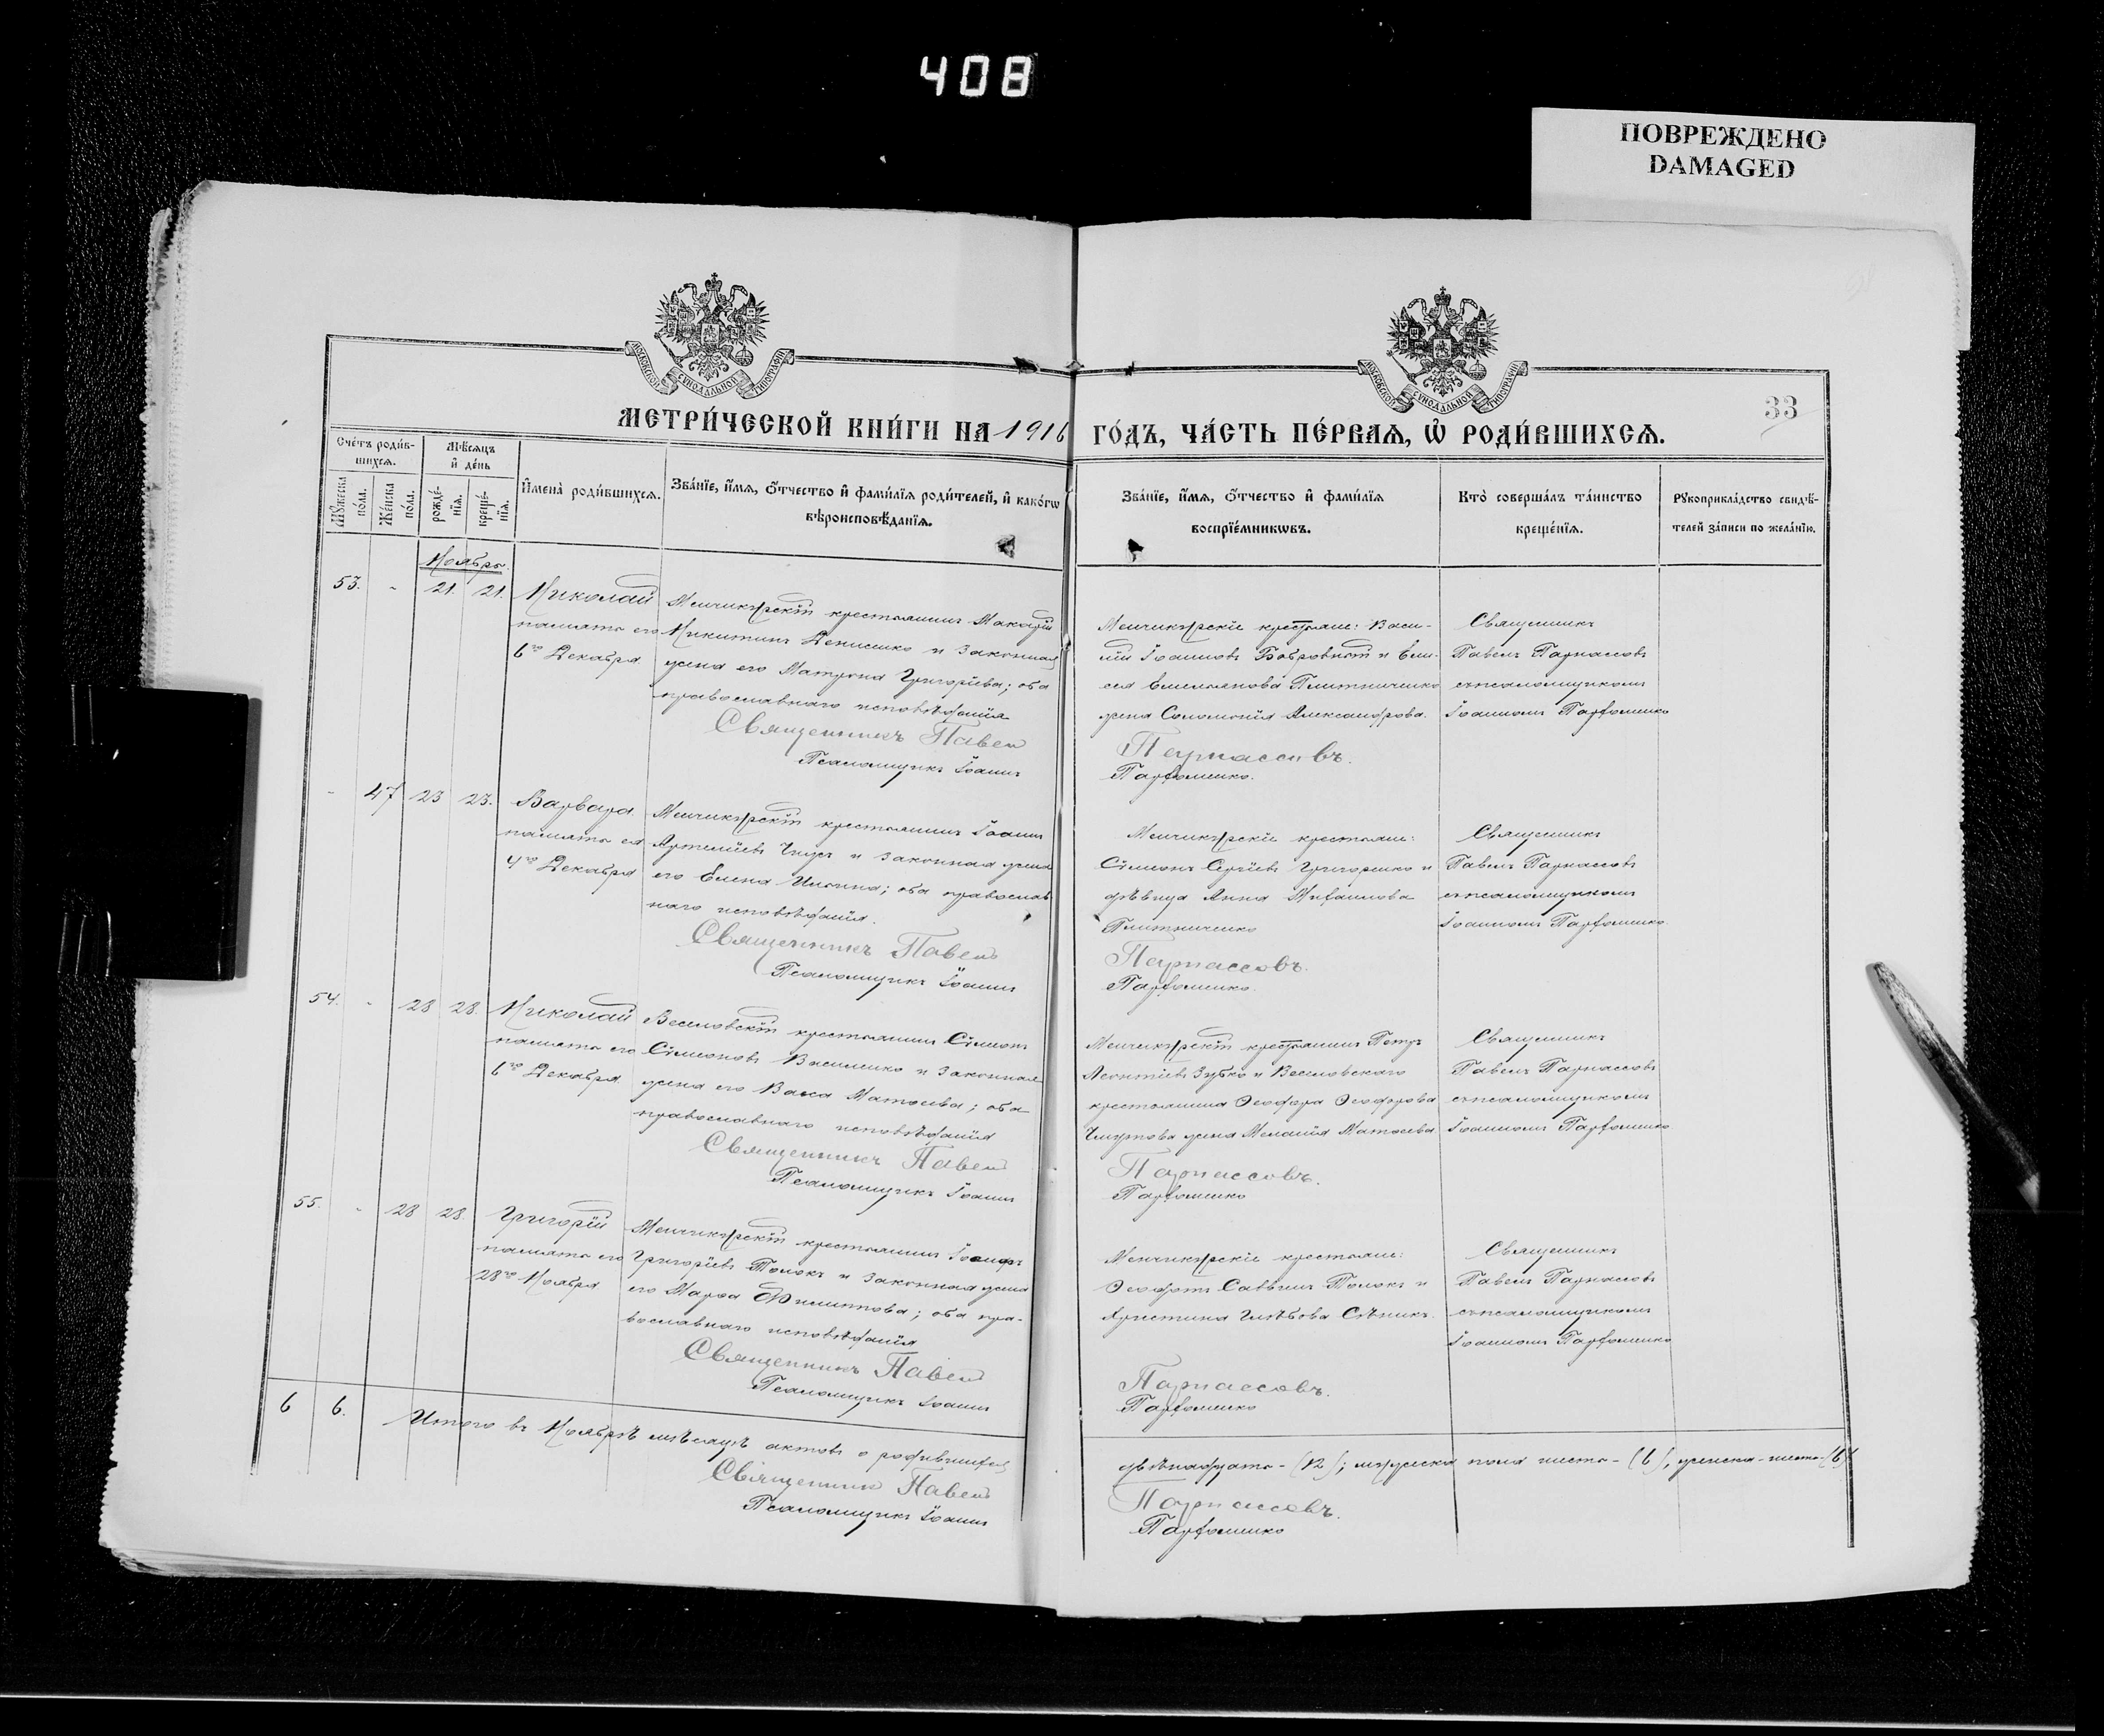 408
ПОВРЕЖДЕНО
DAMAGED
МОСКОВСКОЙ СѴНОДАЛЬНОЙ ТИПОГРАФІИ
МОСКОВСКОЙ СѴНОДАЛЬНОЙ ТИПОГРАФІИ
33
МЕТРИ́ЧЕСКОЙ КНИ́ГИ НА 1916 ГО́ДЪ, ЧА́СТЬ ПЕ́РВАѦ, Ѡ҆ РОДИ́ВШИХСѦ.
Сче́тъ роди́в-
шихсѧ.
Мѣ́сѧцъ
и҆ де́нь
Мꙋ́жеска
по́ла.
Же́нска
по́ла.
рожде́-
нїѧ.
креще́-
нїѧ.
И҆мена̀ роди́вшихсѧ.
Зва́нїе, и҆́мѧ, ѻ҆́тчество и҆ фами́лїѧ роди́телей, и҆ како́гѡ
вѣроисповѣ́данїѧ.
Зва́нїе, и҆́мѧ, ѻ҆́тчество и҆ фами́лїѧ
воспрїе́мникѡвъ.
Кто̀ соверша́лъ та́инство
креще́нїѧ.
Рꙋкоприкла́дство свидѣ́-
телей за́писи по жела́нїю.
Ноябрь.
53. - 21. 21. Николай
память его
6го Декабря
Менчикурскій крестьянинъ Макарій
Никитинъ Денисенко и законная
жена его Матрона Григоріева; оба
православнаго исповѣданія
Священникъ Павелъ
Псаломщикъ Іоаннъ
Менчикурскіе крестьяне: Васи-
лій Іоанновъ Бобровный и Ели-
сея Емельянова Плитниченко
жена Соломонія Александрова.
Парнассовъ.
Парфоменко.
Священникъ
Павелъ Парнассовъ
съ псаломщикомъ
Іоанномъ Парфоменко
- 47 23 23. Варвара
память ея
4го Декабря
Менчикурскій крестьянинъ Іоаннъ
Артеміевъ и законная жена
его Елена Ильина; оба православ
наго исповѣданія.
Священникъ Павелъ
Псаломщикъ Іоаннъ
Менчикурскіе крестьяне:
Сѵмеонъ Сергіевъ Григоренко и
дѣвица Анна Михаилова
Плитниченко
Парнассовъ.
Парфоменко.
Священникъ
Павелъ Парнассовъ
съ псаломщикомъ
Іоанномъ Парфоменко.
54. - 28 28. Николай
память его
6го Декабря
Веселовскій крестьянинъ Сѵмеонъ
Сѵмеоновъ Василенко и законная
жена его Васса Матѳеева; оба
православнаго исповѣданія
Священникъ Павелъ
Псаломщикъ Іоаннъ
Менчикурскій крестьянинъ Петръ
Леонтіевъ Зубко и Веселовскаго
крестьянина Ѳеодора Ѳеодорова
жена Меланія Матѳеева
Парнассовъ.
Парфоменко
Священникъ
Павелъ Парнассовъ
съ псаломщикомъ
Іоанномъ Парфоменко
55. - 28 28. Григорій
память его
28го Ноября
Менчикурскій крестьянинъ Іосифъ
Григоріевъ Толокъ и законная жена
его Марѳа Филиппова; оба пра-
вославнаго исповѣданія
Священникъ Павелъ
Псаломщикъ Іоаннъ
Менчикурскіе крестьяне:
Ѳеодотъ Саввинъ Толокъ и
Христина Глѣбова
Парнассовъ.
Парфоменко
Священникъ
Павелъ Парнассовъ
съ псаломщикомъ
Іоанномъ Парфоменко
6 6. Итого въ Ноябрѣ мѣсяцѣ актовъ о родившихся двѣнадцать - (12); мужеска пола шесть - (6), женска - шесть - (6)
Священникъ Павелъ Парнассовъ.
Псаломщикъ Іоаннъ Парфоменко